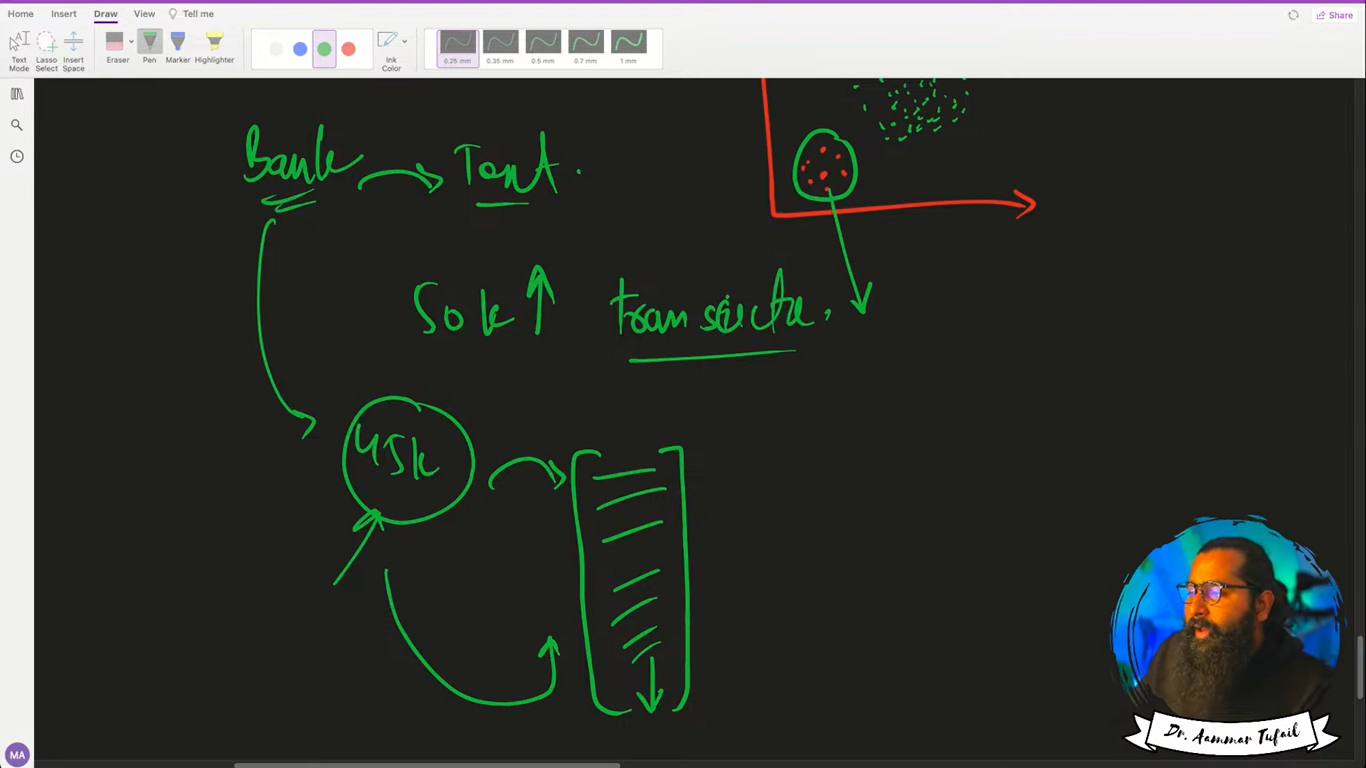 Home Insert Draw View Tell me
Share
Text Mode
Lasso Select
Insert Space
Eraser
Pen
Marker
Highlighter
Ink Color
0.25 mm
0.35 mm
0.5 mm
0.7 mm
1 mm
Bank
50k
45k
MA
Dr. Aammar Tufail